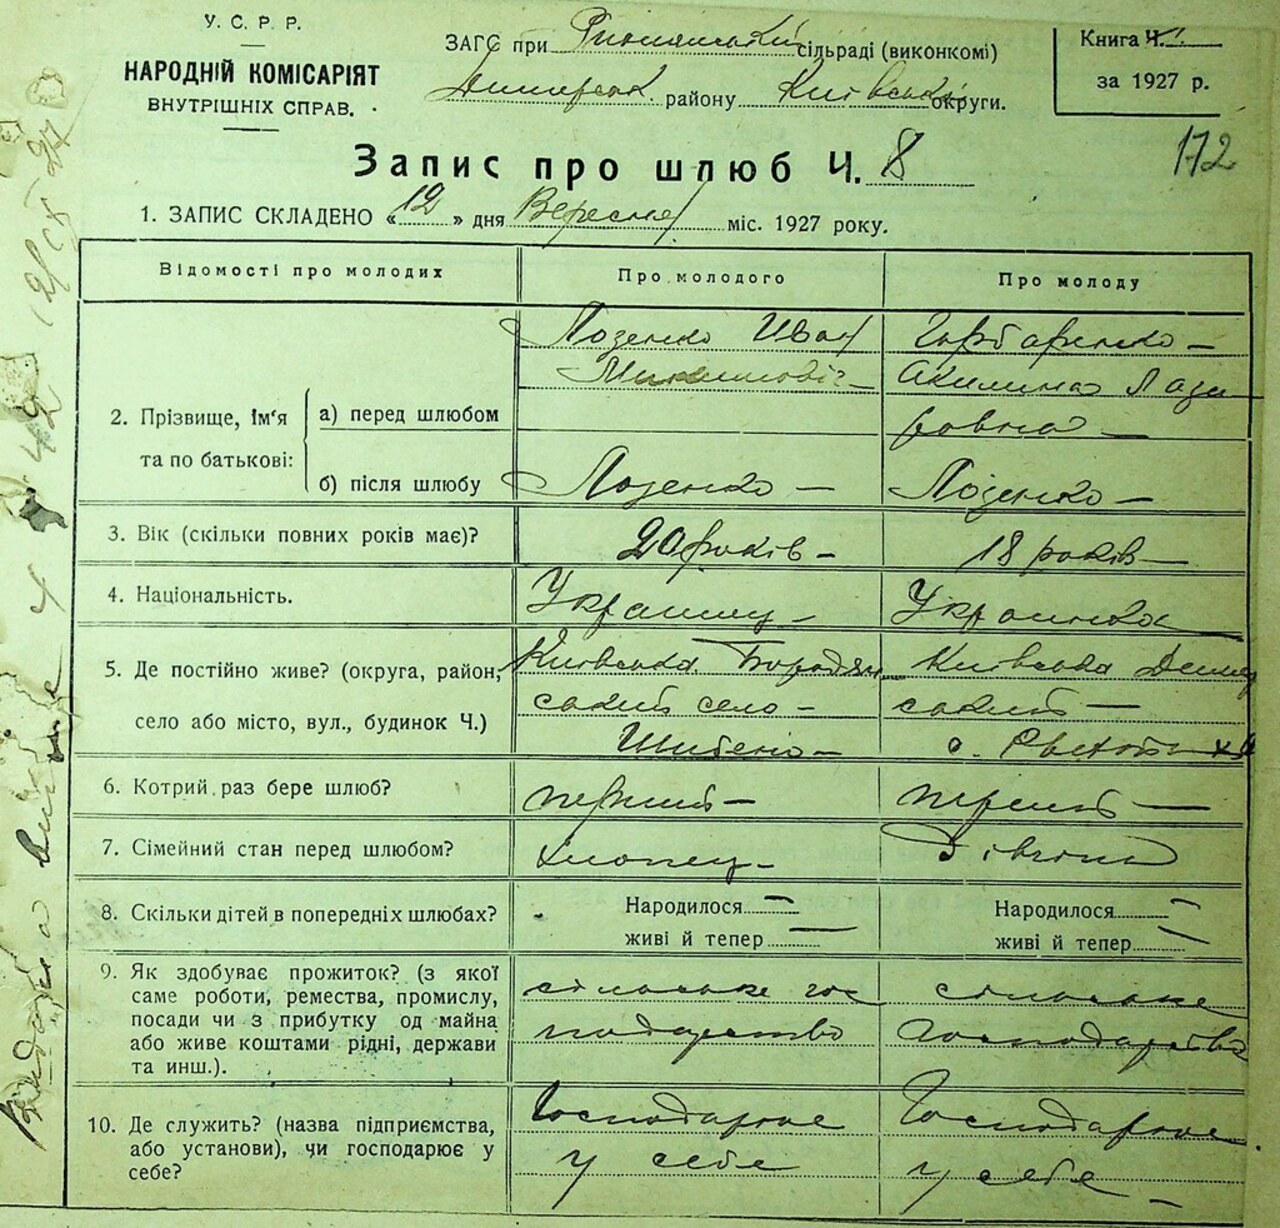 У. С. Р. Р.
НАРОДНІЙ КОМІСАРІЯТ
ВНУТРІШНІХ СПРАВ.
ЗАГС при сільраді (виконкомі)
Димерськ. району Київської округи.
Книга Ч.
за 1927 р.
172
Запис про шлюб Ч. 8
1. ЗАПИС СКЛАДЕНО «12» дня Вересня міс. 1927 року.
Відомості про молодих
Про молодого
Про молоду
2. Прізвище, Ім'я та по батькові:
а) перед шлюбом
Лозенко Иван
Горбаренко —
Акилина Лаза
ровна —
б) після шлюбу
Лозенко —
Лозенко —
3. Вік (скільки повних років має)?
20 років —
18 років —
4. Національність.
Украинец —
Украинка
5. Де постійно живе? (округа, район,
село або місто, вул., будинок Ч.)
Київська Бородян
ський село —
Шибене —
Київська Димер
ський —
с.
6. Котрий раз бере шлюб?
перший —
перший —
7. Сімейний стан перед шлюбом?
хлопец —
дівчина
8. Скільки дітей в попередніх шлюбах?
Народилося —
живі й тепер —
Народилося —
живі й тепер —
9. Як здобуває прожиток? (з якої
саме роботи, ремества, промислу,
посади чи з прибутку од майна
або живе коштами рідні, держави
та инш.).
сільське гос
подарство
сільське
господарство
10. Де служить? (назва підприємства,
або установи), чи господарює у
себе?
Господарює
у себе
Господарює
у себе —